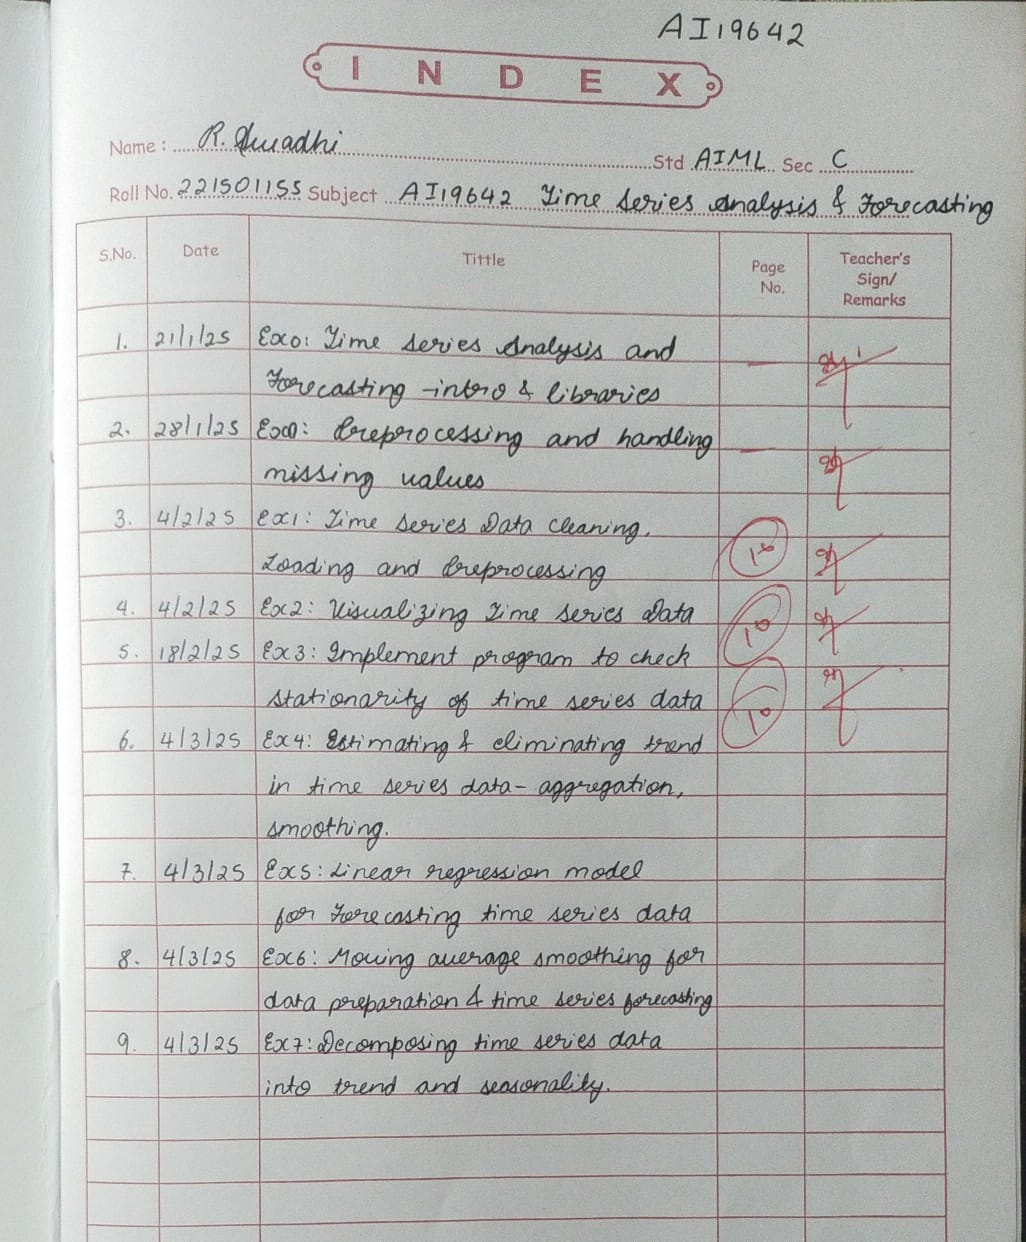 AI19642
INDEX
Name : R. Swadhi Std AIML Sec C
Roll No. 221501155 Subject AI19642 Time Series Analysis & Forecasting
S.No. Date Tittle Page No. Teacher's Sign/ Remarks
1. 21/1/25 Ex0: Time Series Analysis and —
Forecasting -intro & libraries
2. 28/1/25 Ex0: Preprocessing and handling —
missing values
3. 4/2/25 Ex1: Time Series Data cleaning,
Loading and Preprocessing 10
4. 4/2/25 Ex2: Visualizing Time series Data 10
5. 18/2/25 Ex3: Implement program to check
stationarity of time series data 10
6. 4/3/25 Ex4: Estimating & eliminating trend
in time series data- aggregation,
smoothing.
7. 4/3/25 Ex5: Linear regression model
for Forecasting time series data
8. 4/3/25 Ex6: Moving average smoothing for
data preparation & time series forecasting
9. 4/3/25 Ex7: Decomposing time series data
into trend and seasonality.